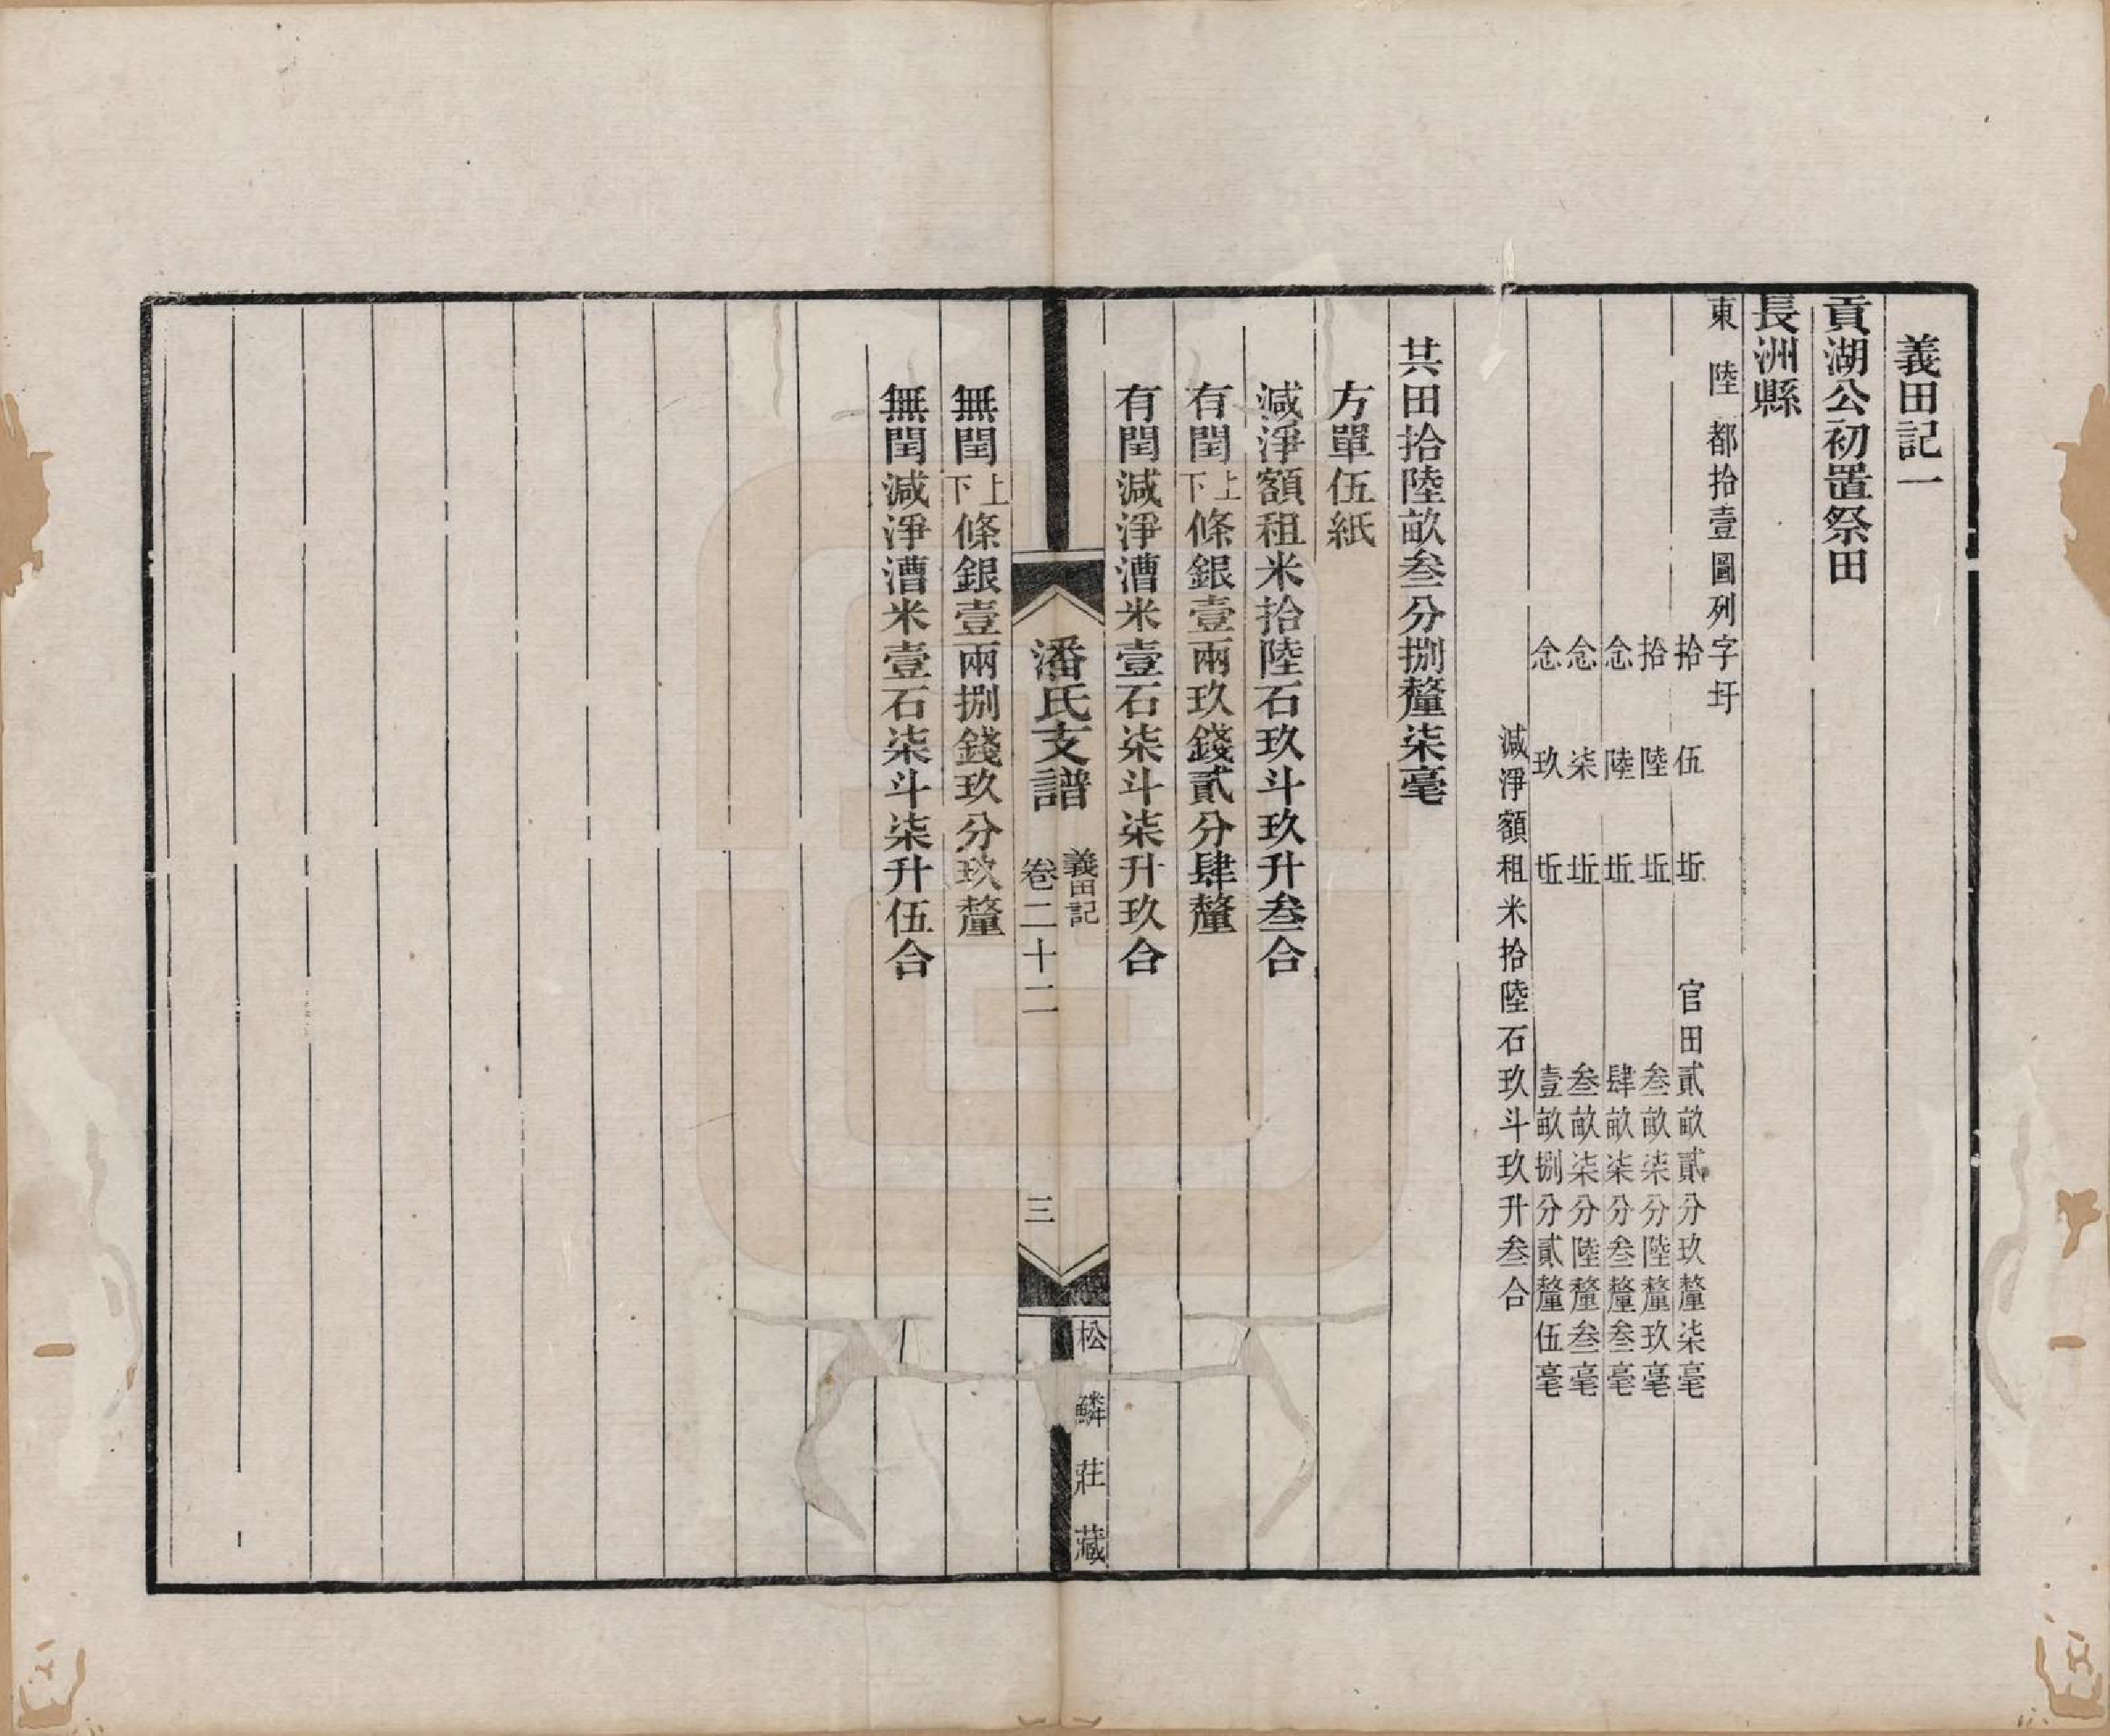 義田記一
貢湖公初置祭田
長洲縣
東陸都拾壹圖列字圩
拾伍坵官田貳畝貳分玖釐柒毫
拾陸坵叁畝柒分陸釐玖毫
念陸坵肆畝柒分叁釐叁毫
念柒坵叁畝柒分陸釐叁毫
念玖坵壹畝捌分貳釐伍毫
減淨額租米拾陸石玖斗玖升叁合
共田拾陸畝叁分捌釐柒毫
方單伍紙
減淨額租米拾陸石玖斗玖升叁合
有閏上下條銀壹兩玖錢貳分肆釐
有閏減淨漕米壹石柒斗柒升玖合
潘氏支譜
義田記
卷二十二
三
松鱗莊藏
無閏上下條銀壹兩捌錢玖分玖釐
無閏減淨漕米壹石柒斗柒升伍合